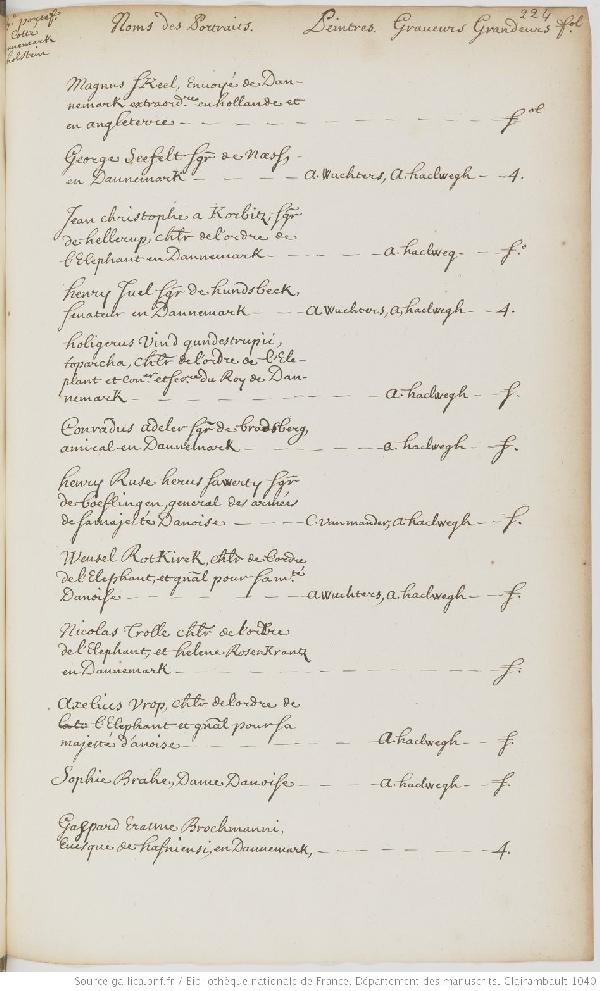 224
Noms des Portraits. Peintres. Graveurs Grandeurs fol
Cotte
Dannemark
holstein
Magnus Skeel, Envoyé de Dan-
nemark extraord.re en hollande et
en angleterre f ol
George Seefelt sgr de Næss,
en Dannemark A. Wuchters, A. haelwegh 4.
Jean christophe a Korbitz, sgr
de hellerup, chlr de l'ordre de
l'Elephant en Dannemark a. haelweg f.o
henry Juel sgr de hundsbeck,
senateur en Dannemark A Wuchters, a, haelwegh 4.
holigerus Vind gundestrupii,
toparcha, chlr de l'ordre de l'Ele-
phant et con.er et secr.re du Roy de Dan-
nemark a. haelwegh f.
Conradus adeler sgr de bradsberg,
amiral en Dannemark a haelwegh f.
henry Ruse herus sawerty sgr
de boeflingen, general des armées
de sa majesté Danoise C. van mander, a. haelwegh f.
Wensel RotKirck, chlr de l'ordre
de l'Elephant, et gnãl pour sa m.té
Danoise a wuchters, a. haelwegh f.
Nicolas Trolle chlr de l'ordre
de l'Elephant, et helene RosenKrantz
en Dannemark f.
Axelius Vrop, chlr de l'ordre de
l'Elephant et gnãl pour sa
majesté danoise A. haelwegh f.
Sophie Brahe, Dame Danoise A. haelwegh f.
Gaspard Erasme Brochmanni,
Evesque de hafniensi, en Dannemark, 4.
Source gallica.bnf.fr / Bibliothèque nationale de France. Département des manuscrits. Clairambault 1040